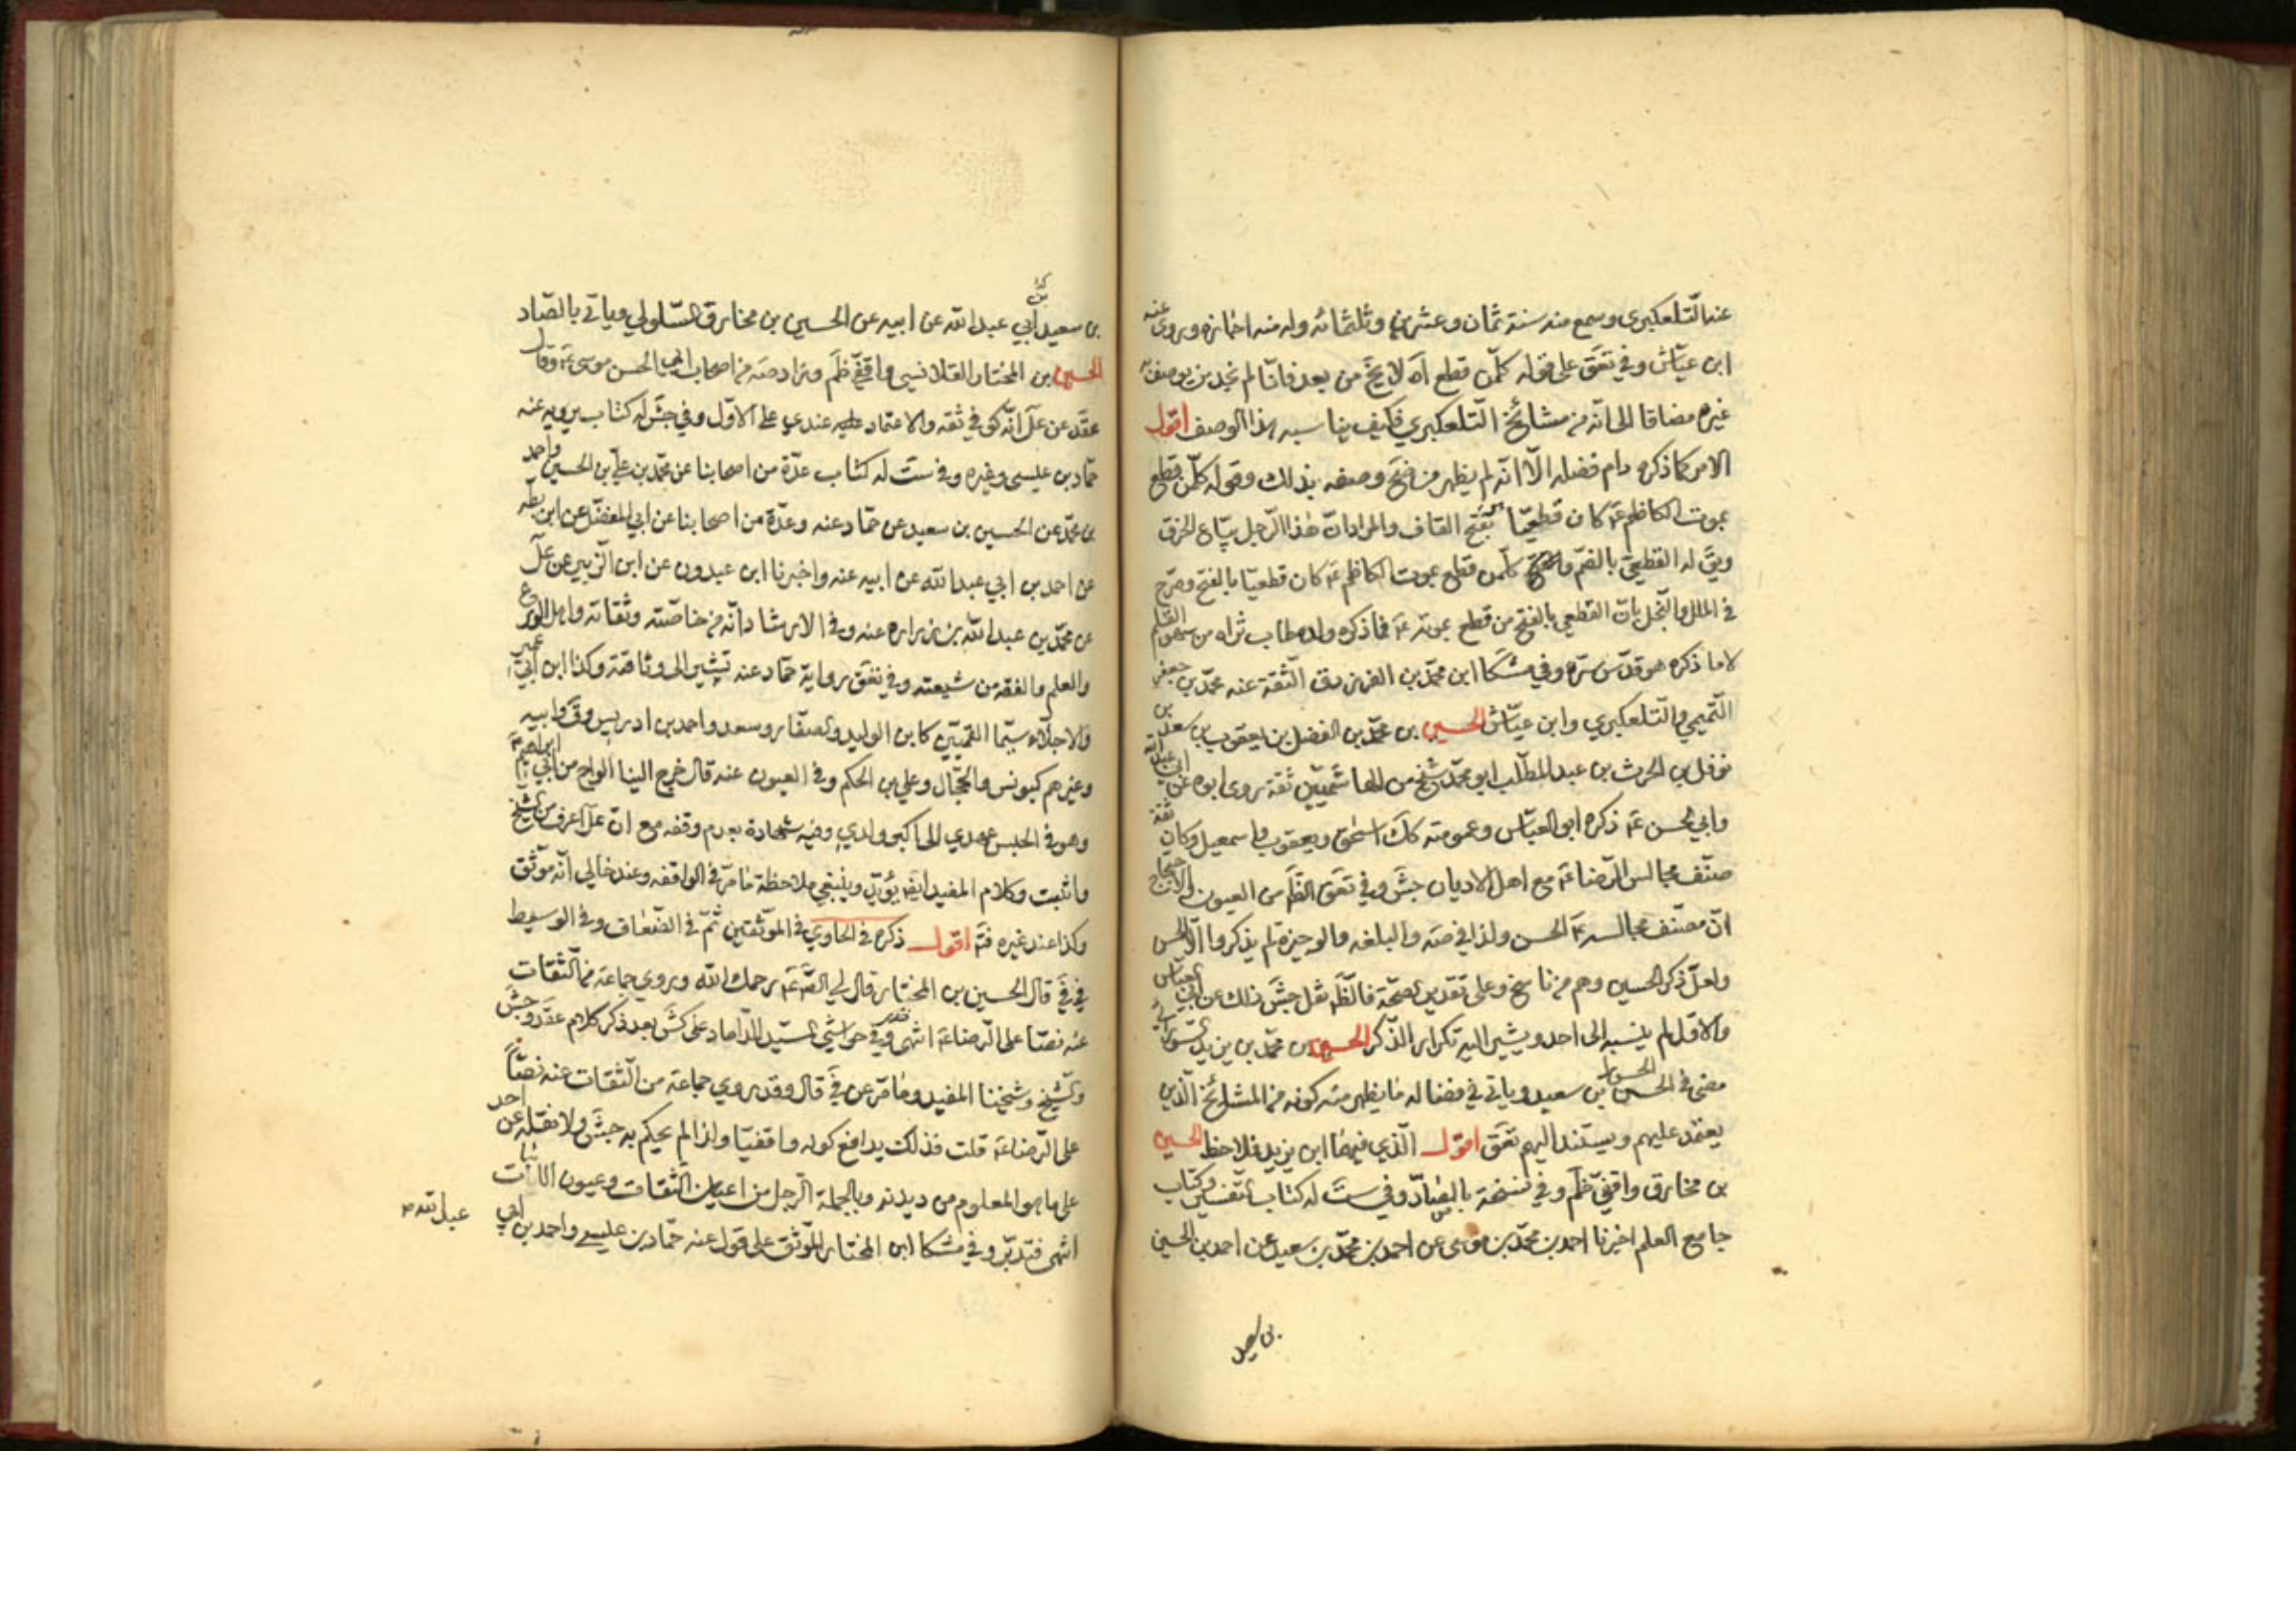 عنه التلعكبري وسمع منه سنة ثمان وعشرين وثلثمائه وله منه اجازه وروى عنه
ابن عيّاش وفي تعَق على قوله كلّمن قطع آه لا يخَ من بعد فانّا لم نجد من يوصف به
غيره مضافا الى انّه من مشائخ التلعكبري فكيف يناسبه هذا الوصف اقول
الامر كما ذكره دام فضله الّا انّه لم يظهر من ضح وصفه بذلك وقوله كلّمن قطع
بموت الكاظم عَم كان قطعيّا بفتح القاف والمراد انّ هذا الرّجل بيّاع الخرق
ويقَ له القطيعي بالضمّ و كلّمن قطع بموت الكاظم عَم كان قطعيّا بالفتح وصرّح
في الملل والنّحل بانّ القطعي بالفتح من قطع بموته عَم فما ذكره ولده طاب ثراه من سهو القلم
لا ما ذكره هو قدّس سرّه وفي مشكا ابن محمّد بن الفرزدق الثّقة عنه محمّد بن جعفر
التّميمي والتلعكبري وابن عيّاش الحسين بن محمّد بن الفضل بن يعقوب بن سعد بن
نوفل بن الحرث بن عبد المطّلب ابو محمّد شيخ من الهاشميّين ثقة روى ابوه عن ابي عبد الله
وابي الحسن عَم ذكره ابو العبّاس وعمومته كك اسحق ويعقوب واسمعيل وكان ثقة
صنّف مجالس الرّضا عَم مع اهل الاديان جش وفي تعَق الظَم من العيون والاحتجاج
انّ مصنّف مجالسه عَم الحسن ولذا في صَه والبلغه والوجيزه لم يذكروا الّا الحسن
ولعلّ ذكر الحسين وهم من ناسخ وعلى تقدير الصحّة فالظَم نقل جش ذلك عن ابي العبّاس
والاوّل لم ينسبه الى احد ويشير اليه تكرار الذّكر الحسين بن محمّد بن يزيد السّورائي
مضى في الحسين بن سعيد وياتي في فضاله ما يظهر منه كونه من المشائخ الّذين
يعتمد عليهم ويستند اليهم تعَق اقول الّذي فيهما ابن يزيد فلاحظ الحسين
بن مخارق واقفيّ ظَم وفي نسخة بالصّاد وفي ست له كتاب التفسير وكتاب
جامع العلم اخبرنا احمد بن محمّد بن موسى عن احمد بن محمّد بن سعيد عن احمد بن الحسين
بن سعيد
بن سعيد ابي عبد الله عن ابيه عن الحسين بن مخارق السّلولي وياتي بالصّاد
الحسين بن المختار القلانسي واقفيّ ظَم وزاد صَه من اصحاب ابي الحسن موسى عَم وقال
عقد عن عل انّه كوفي ثقه والاعتماد عليه عندي على الاوّل وفي جش له كتاب يرويه عنه
حمّاد بن عيسى وغيره وفي ست له كتاب عدّة من اصحابنا عن محمّد بن عليّ بن الحسين واحمد
بن محمّد عن الحسين بن سعيد عن حمّاد عنه وعدّة من اصحابنا عن ابي المفضّل عن ابن بطّه
عن احمد بن ابي عبد الله عن ابيه عنه واخبرنا ابن عبدون عن ابن الزّبير عن عل
عن محمّد بن عبد الله بن زراره عنه وفي الارشاد انّه من خاصّته وثقاته واهل الورع
والعلم والفقه من شيعته وفي تعَق رواية حمّاد عنه تشير الى وثاقته وكذا ابن ابي عمير
والاجلّاء سيّما القميّين كابن الوليد والصفّار وسعد واحمد بن ادريس وقَ وابيه
وغيرهم كيونس والحجّال وعلي بن الحكم وفي العيون عنه قال خرج الينا الواح من ابي ابراهيم عَم
وهو في الحبس عهدي الى اكبر ولدي وفيه شهادة بعدم وقفه مع انّ عل اعرف من الشّيخ
واثبت وكلام المفيد ايضَ يؤيّد وينبغي ملاحظة ما مرّ في الواقفه وعند خالي انّه موثّق
وكذا عند غيره فتَم اقول ذكره في الحاوي في الموثّقين ثمّ في الضّعاف وفي الوسيط
في في قال الحسين بن المختار قال لي الصّ عَم رحمك الله وروى جماعة من الثّقات
عنه نصّا على الرّضا عَم انتهى وفي حواشي السيّد الدّاماد على كش بعد ذكر كلام عقد وجش
والشّيخ وشيخنا المفيد وما مرّ عن في قال وقد روى جماعة من الثّقات عنه نصّاً
على الرّضا عَم قلت فذلك يدافع كونه واقفيّا ولذا لم يحكم به جش ولا نقله عن احد
على ما هو المعلوم من ديدنه وبالجملة الرّجل من اعيان الثّقات وعيون الاثبات
انتهى فتدبّر وفي مشكا ابن المختار الموثّق على قول عنه حمّاد بن عيسى واحمد بن ابي
عبد الله